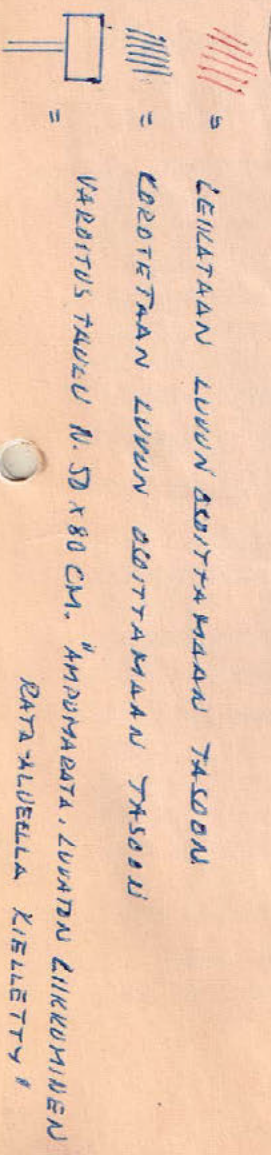 = LEIKATAAN LUVUN OSOITTAMAAN TASOON
= KOROTETAAN LUVUN OSOITTAMAAN TASOON
= VAROITUS TAULU N. 50 x 80 CM. "AMPUMARATA. LUVATON LIIKKUMINEN
RATA-ALUEELLA KIELLETTY"